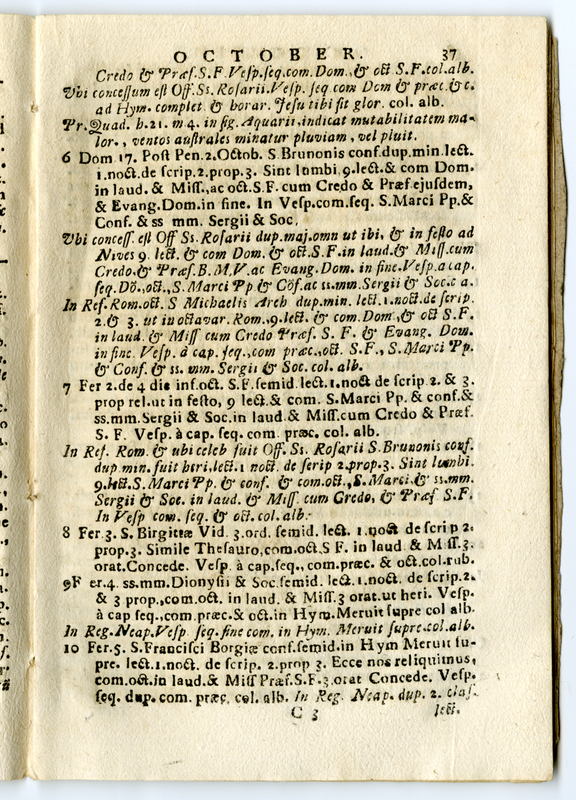 OCTOBER. 37
Credo & Præf.S.F Vesp.seq.com.Dom.,& oct S.F.col.alb.
Vbi concessum est Off.Ss.Rosarii.Vesp. seq com Dom & præc.&c.
ad Hym. complet & horar. Jesu tibi sit glor. col. alb.
Pr.Quad. h.21. m 4. in sig. Aquarii,indicat mutabilitatem ma-
lor., ventos australes minatur pluviam, vel pluit.
6 Dom 17. Post Pen.2.Octob. S Brunonis conf.dup.min.lect.
1.noct.de scrip.2.prop.3. Sint lumbi,9.lect.& com Dom.
in laud.& Miss.,ac oct.S.F.cum Credo & Præf ejusdem,
& Evang.Dom.in fine. In Vesp.com.seq. S.Marci Pp.&
Conf. & ss mm. Sergii & Soc,
Vbi concess. est Off Ss. Rosarii dup.maj.omn ut ibi, & in festo ad
Nives 9. lect. & com Dom.& oct.S.F.in laud.& Miss.cum
Credo.& Præf.B.M.V.ac Evang.Dom.in fine.Vesp.a cap.
seq.Dō.,oct.,S.Marci Pp & Cōf.ac ss.mm.Sergii & Soc.c a.
In Ref.Rom.oct. S Michaelis Arch dup.min. lect.1.noct.de scrip.
2.& 3. ut in octavar. Rom.,9.lect. & com.Dom.& oct S.F.
in laud.& Miss cum Credo Præf. S. F. & Evang. Dom.
in fine Vesp. à cap. seq.,com præc.,oct. S.F., S.Marci Pp.
& Conf. & ss. mm. Sergii & Soc. col. alb.
7 Fer 2.de 4 die inf.oct. S.F.semid.lect.1.noct de scrip 2. & 3.
prop rel.ut in festo, 9 lect.& com. S.Marci Pp. & conf.&
ss.mm.Sergii & Soc.in laud.& Miss.cum Credo & Præf.
S. F. Vesp. à cap. seq. com. præc. col. alb.
In Ref. Rom. & ubi celeb fuit Off. Ss. Rosarii S.Brunonis conf.
dup.min.fuit heri.lect.1 noct. de scrip 2.prop.3. Sint lumbi.
9.lect.S.Marci Pp. & conf. & com.oct.,S.Marci.& ss.mm.
Sergii & Soc. in laud. & Miss. cum Credo, & Præf S.F.
In Vesp com. seq. & oct.col. alb.
8 Fer.3. S. Birgittæ Vid.3.ord.semid. lect. 1.noct de scrip 2.
prop.3. Simile Thesauro,com.oct.S F. in laud & Miss.3.
orat.Concede. Vesp. à cap.seq., com.præc. & oct.col.rub.
9F er.4. ss.mm.Dionysii & Soc.semid. lect. 1.noct. de scrip.2.
& 3 prop.,com.oct. in laud. & Miss.3 orat.ut heri. Vesp.
à cap seq.,com.præc.& oct.in Hym.Meruit supre col alb.
In Reg.Neap.Vesp seq.sine com. in Hym. Meruit supre.col.alb.
10 Fer.5. S.Francisci Borgiæ conf.semid.in Hym Meruit su-
pre. lect.1.noct. de scrip. 2.prop 3. Ecce nos reliquimus,
com.oct.in laud.& Miss Præf.S.F.3.orat Concede. Vesp.
seq. dup. com. præc. col. alb. In Reg. Neap. dup. 2. clas.
C 3 lect.